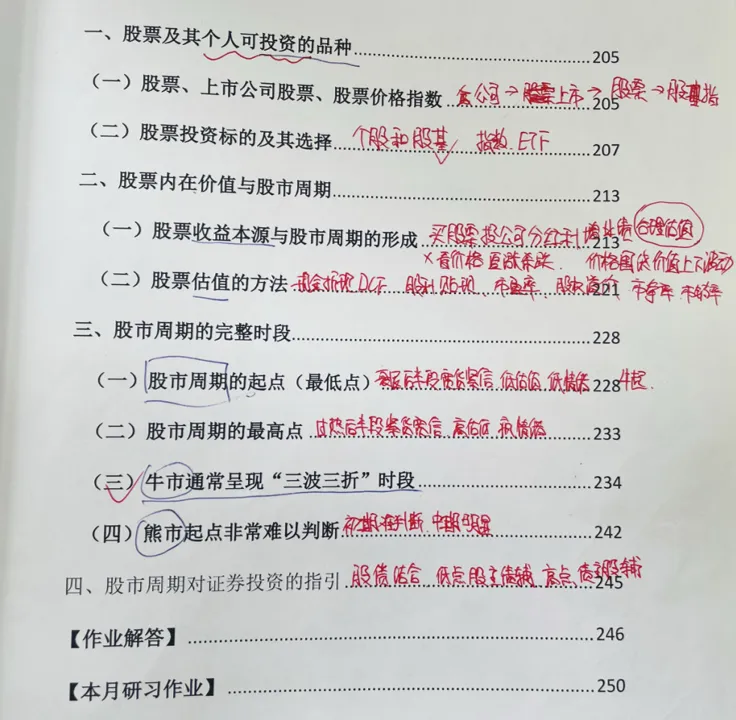 一、股票及其个人可投资的品种 205
（一）股票、上市公司股票、股票价格指数 公司→股票上市→股票→股 205
（二）股票投资标的及其选择 个股和股基 指数.ETF 207
二、股票内在价值与股市周期 213
（一）股票收益本源与股市周期的形成 买股票投公司分红利 合理估值 213
×看价格 价格围 价值上下波动
（二）股票估值的方法 现金折现DCF 股利贴现、市盈率、市净率 市销率 221
三、股市周期的完整时段 228
（一）股市周期的起点（最低点） 后半段宽货宽信 低估值 低情绪 228 牛起.
（二）股市周期的最高点 过热后半段紧货宽信 高估值 233
（三）牛市通常呈现“三波三折”时段 234
（四）熊市起点非常难以判断 初期难判断.中期明显 242
四、股市周期对证券投资的指引 股债结合 低点股主债辅 高点.债主股辅 245
【作业解答】 246
【本月研习作业】 250